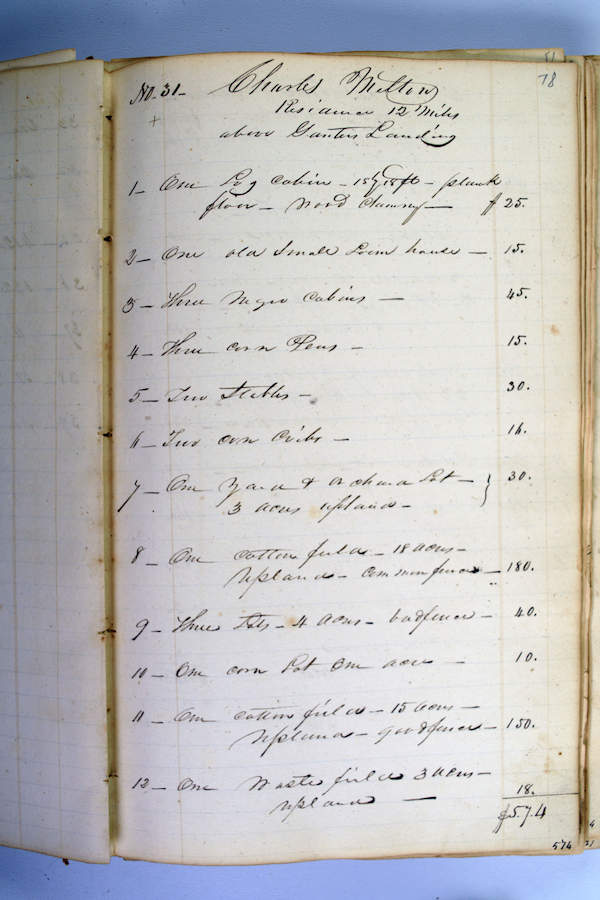 78
No. 31 - Charles Melton
Residence 12 Miles
above Gunters Landing
1 - One Log cabin - 18 by 18 ft - plank
floor - Wood chimney - $ 25.
2 - One old Small Loom house - 15.
3 - Three Negro Cabins - 45.
4 - Three corn Pens - 15.
5 - Two Stables - 30.
6 - Two corn Cribs - 16.
7 - One Yard & Orchard Lot - } 30.
3 acres upland -
8 - One cotton field - 18 acres -
Upland - common fence - 180.
9 - Three Lots - 4 acres - bad fence - 40.
10 - One corn Lot One acre - 10.
11 - One cotton field - 15 acres -
Upland - good fence - 150.
12 - One Waste field 3 acres -
upland - 18.
$574
574